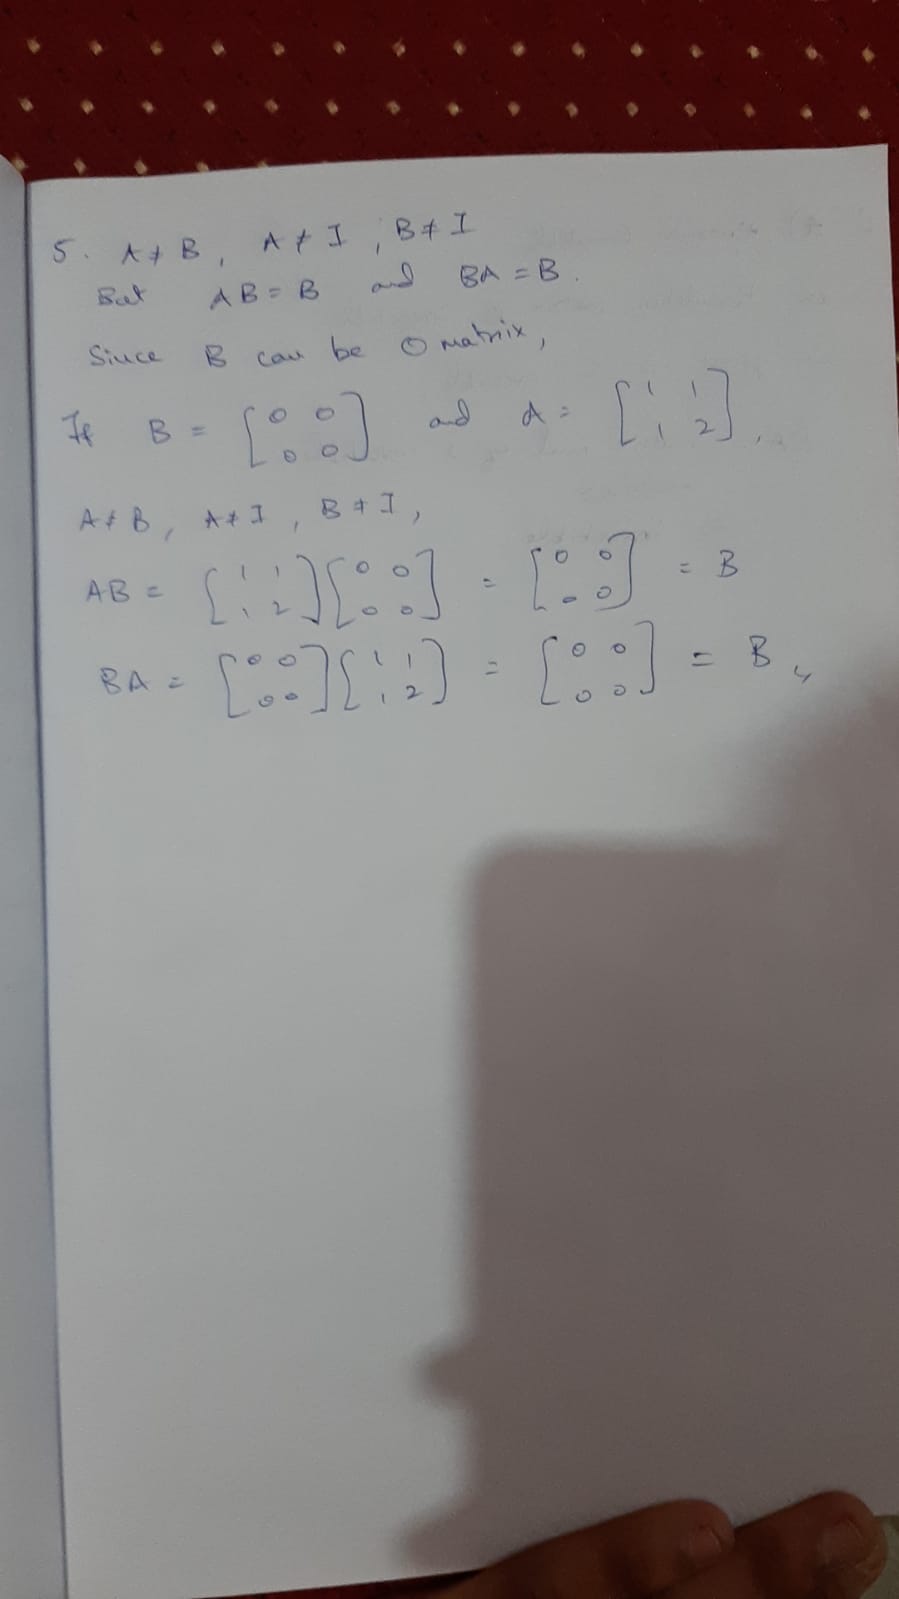 5. A ≠ B, A ≠ I, B ≠ I
But AB = B and BA = B.
Since B can be O matrix,
If B = [0 0; 0 0] and A = [1 1; 1 2],
A ≠ B, A ≠ I, B ≠ I,
AB = [1 1; 1 2] [0 0; 0 0] = [0 0; 0 0] = B
BA = [0 0; 0 0] [1 1; 1 2] = [0 0; 0 0] = B